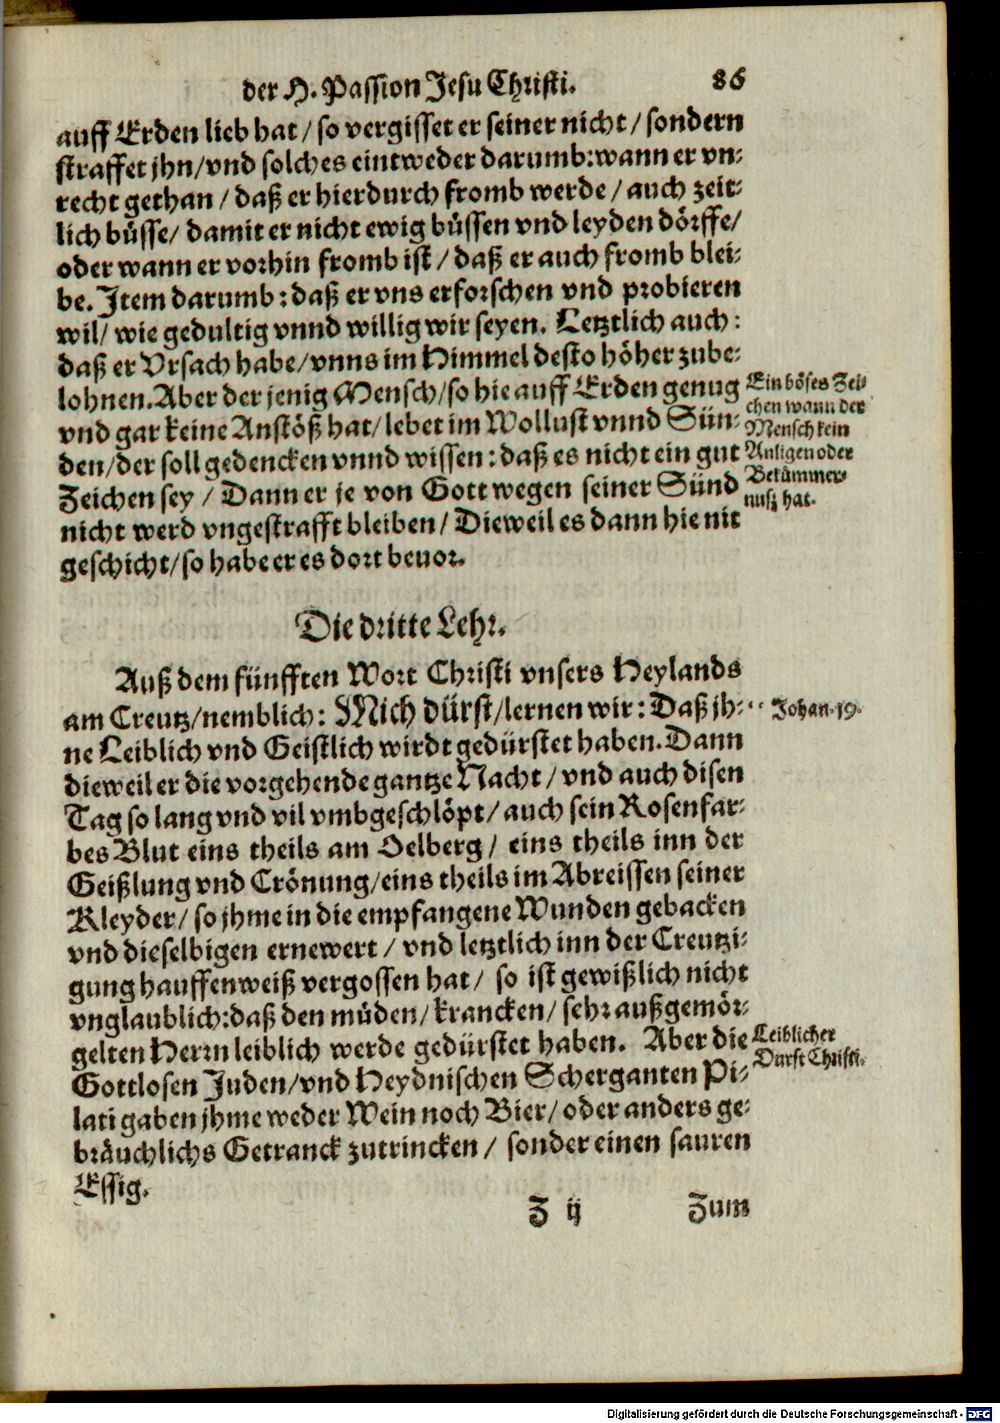 der H. Passion Jesu Christi. 86
auff Erden lieb hat / so vergisset er seiner nicht / sondern
straffet jhn / vnd solches eintweder darumb: wann er vn-
recht gethan / daß er hierdurch fromb werde / auch zeit-
lich büsse / damit er nicht ewig büssen vnd leyden dörffe /
oder wann er vorhin fromb ist / daß er auch fromb blei-
be. Item darumb: daß er vns erforschen vnd probieren
wil / wie gedultig vnnd willig wir seyen. Letztlich auch:
daß er Vrsach habe / vnns im Himmel desto höher zube-
lohnen. Aber der jenig Mensch / so hie auff Erden genug
vnd gar keine Anstöß hat / lebet im Wollust vnnd Sün-
den / der soll gedencken vnnd wissen: daß es nicht ein gut
Zeichen sey / Dann er je von Gott wegen seiner Sünd
nicht werd vngestrafft bleiben / Dieweil es dann hie nit
geschicht / so habe er es dort beuor.
Ein böses Zei-
chen wann der
Mensch kein
Anligen oder
Bekümmer-
nuß hat.
Die dritte Lehr.
Auß dem fünfften Wort Christi vnsers Heylands
am Creutz / nemblich: Mich dürst / lernen wir: Daß jh-
ne Leiblich vnd Geistlich wirdt gedürstet haben. Dann
dieweil er die vorgehende gantze Nacht / vnd auch disen
Tag so lang vnd vil vmbgeschlöpt / auch sein Rosenfar-
bes Blut eins theils am Oelberg / eins theils inn der
Geißlung vnd Crönung / eins theils im Abreissen seiner
Kleyder / so jhme in die empfangene Wunden gebacken
vnd dieselbigen ernewert / vnd letztlich inn der Creutzi-
gung hauffenweiß vergossen hat / so ist gewißlich nicht
vnglaublich: daß den müden / krancken / sehr außgemör-
gelten Herrn leiblich werde gedürstet haben. Aber die
Gottlosen Juden / vnd Heydnischen Scherganten Pi-
lati gaben jhme weder Wein noch Bier / oder anders ge-
bräuchlichs Getranck zutrincken / sonder einen sauren
Essig.
Johan. 19.
Leiblicher
Durst Christi.
Z ij Zum
Digitalisierung gefördert durch die Deutsche Forschungsgemeinschaft - DFG